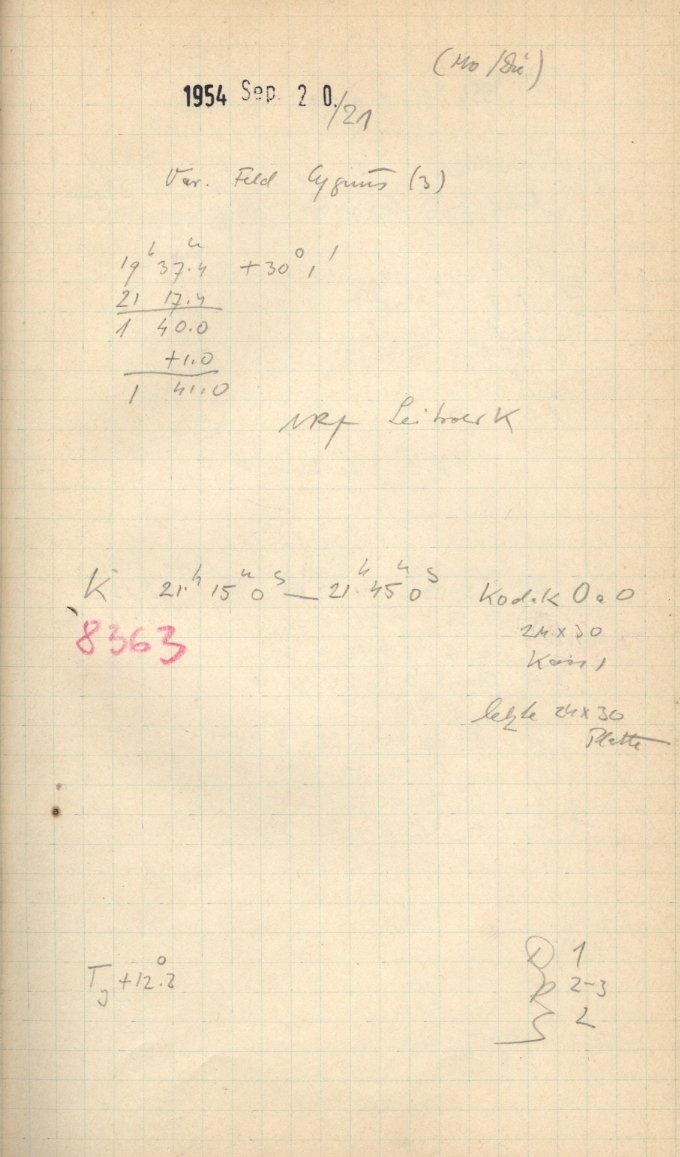 (Mo/Die)
1954 Sep. 20./21
Var. Feld Cygnus (3)
19ʰ 37.4ᵐ +30° 1'
21 17.4
1 40.0
+1.0
1 41.0
K 21ʰ 15ᵐ 0ˢ — 21ʰ 45ᵐ 0ˢ Kodak OaO
8363
24x30
Kass 1
letzte 24x30
Platte
T +12.2°
D 1
R 2-3
S 2